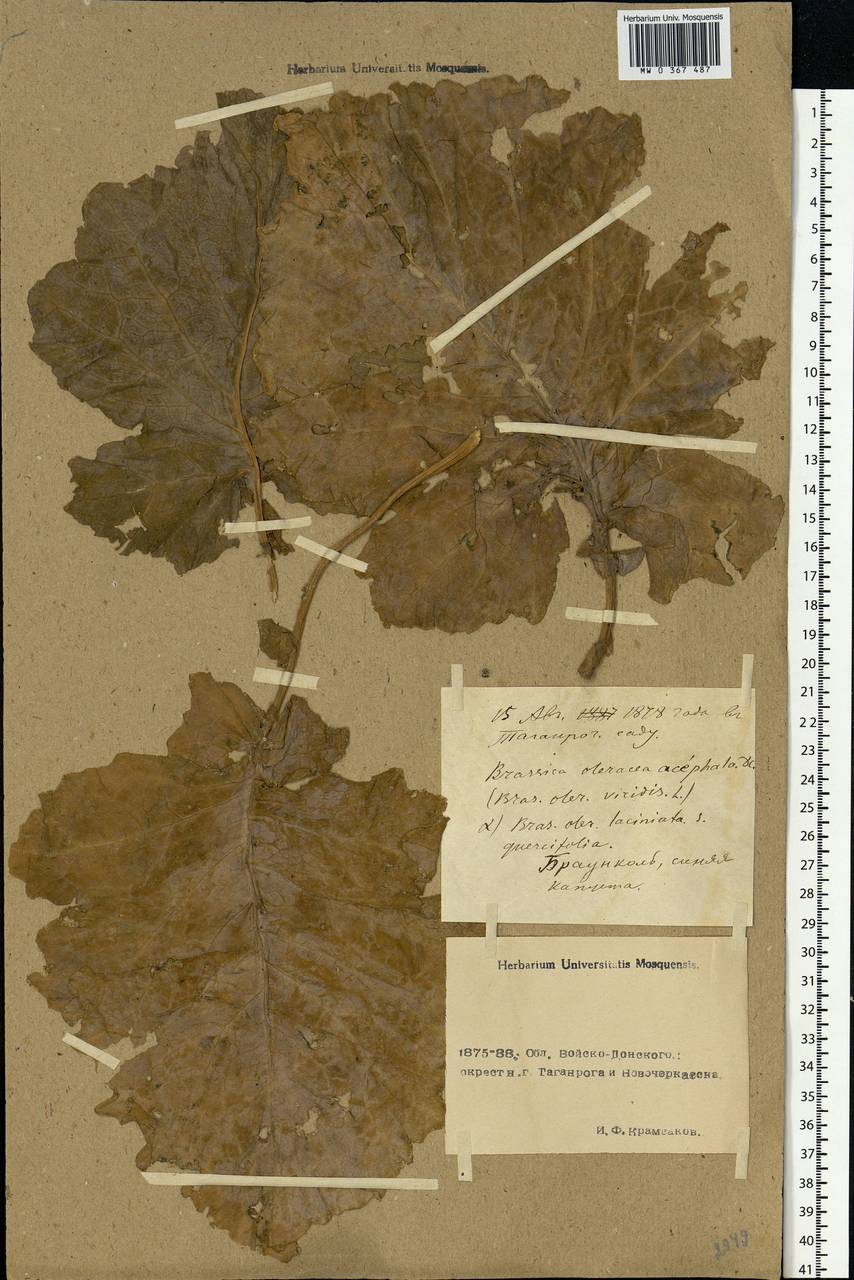 Herbarium Univ. Mosquensis
MW 0 367 487
Herbarium Universitatis Mosquensis.
15 Авг. 1878 года въ
Таганрог. саду.
Brassica oleracea acéphala. DC.
(Bras. oler. viridis. L.)
α) Bras. oler. laciniata. s.
quercifolia.
Браунколь, синяя
капуста.
Herbarium Universitatis Mosquensis.
1875-88. Обл. Войско-Донского.:
окрестн.г. Таганрога и Новочеркасска.
И. Ф. Крамсаков.
2949
1
2
3
4
5
6
7
8
9
10
11
12
13
14
15
16
17
18
19
20
21
22
23
24
25
26
27
28
29
30
31
32
33
34
35
36
37
38
39
40
41